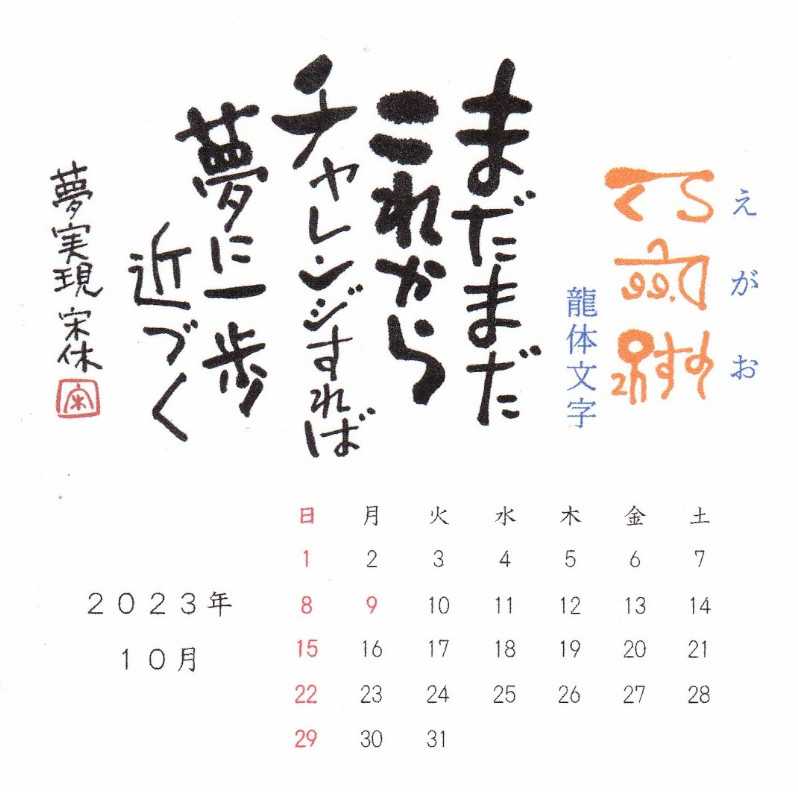 えがお
龍体文字
まだまだ
これから
チャレンジすれば
夢に一歩
近づく
夢実現 宋休
2023年
10月
日 月 火 水 木 金 土
1 2 3 4 5 6 7
8 9 10 11 12 13 14
15 16 17 18 19 20 21
22 23 24 25 26 27 28
29 30 31